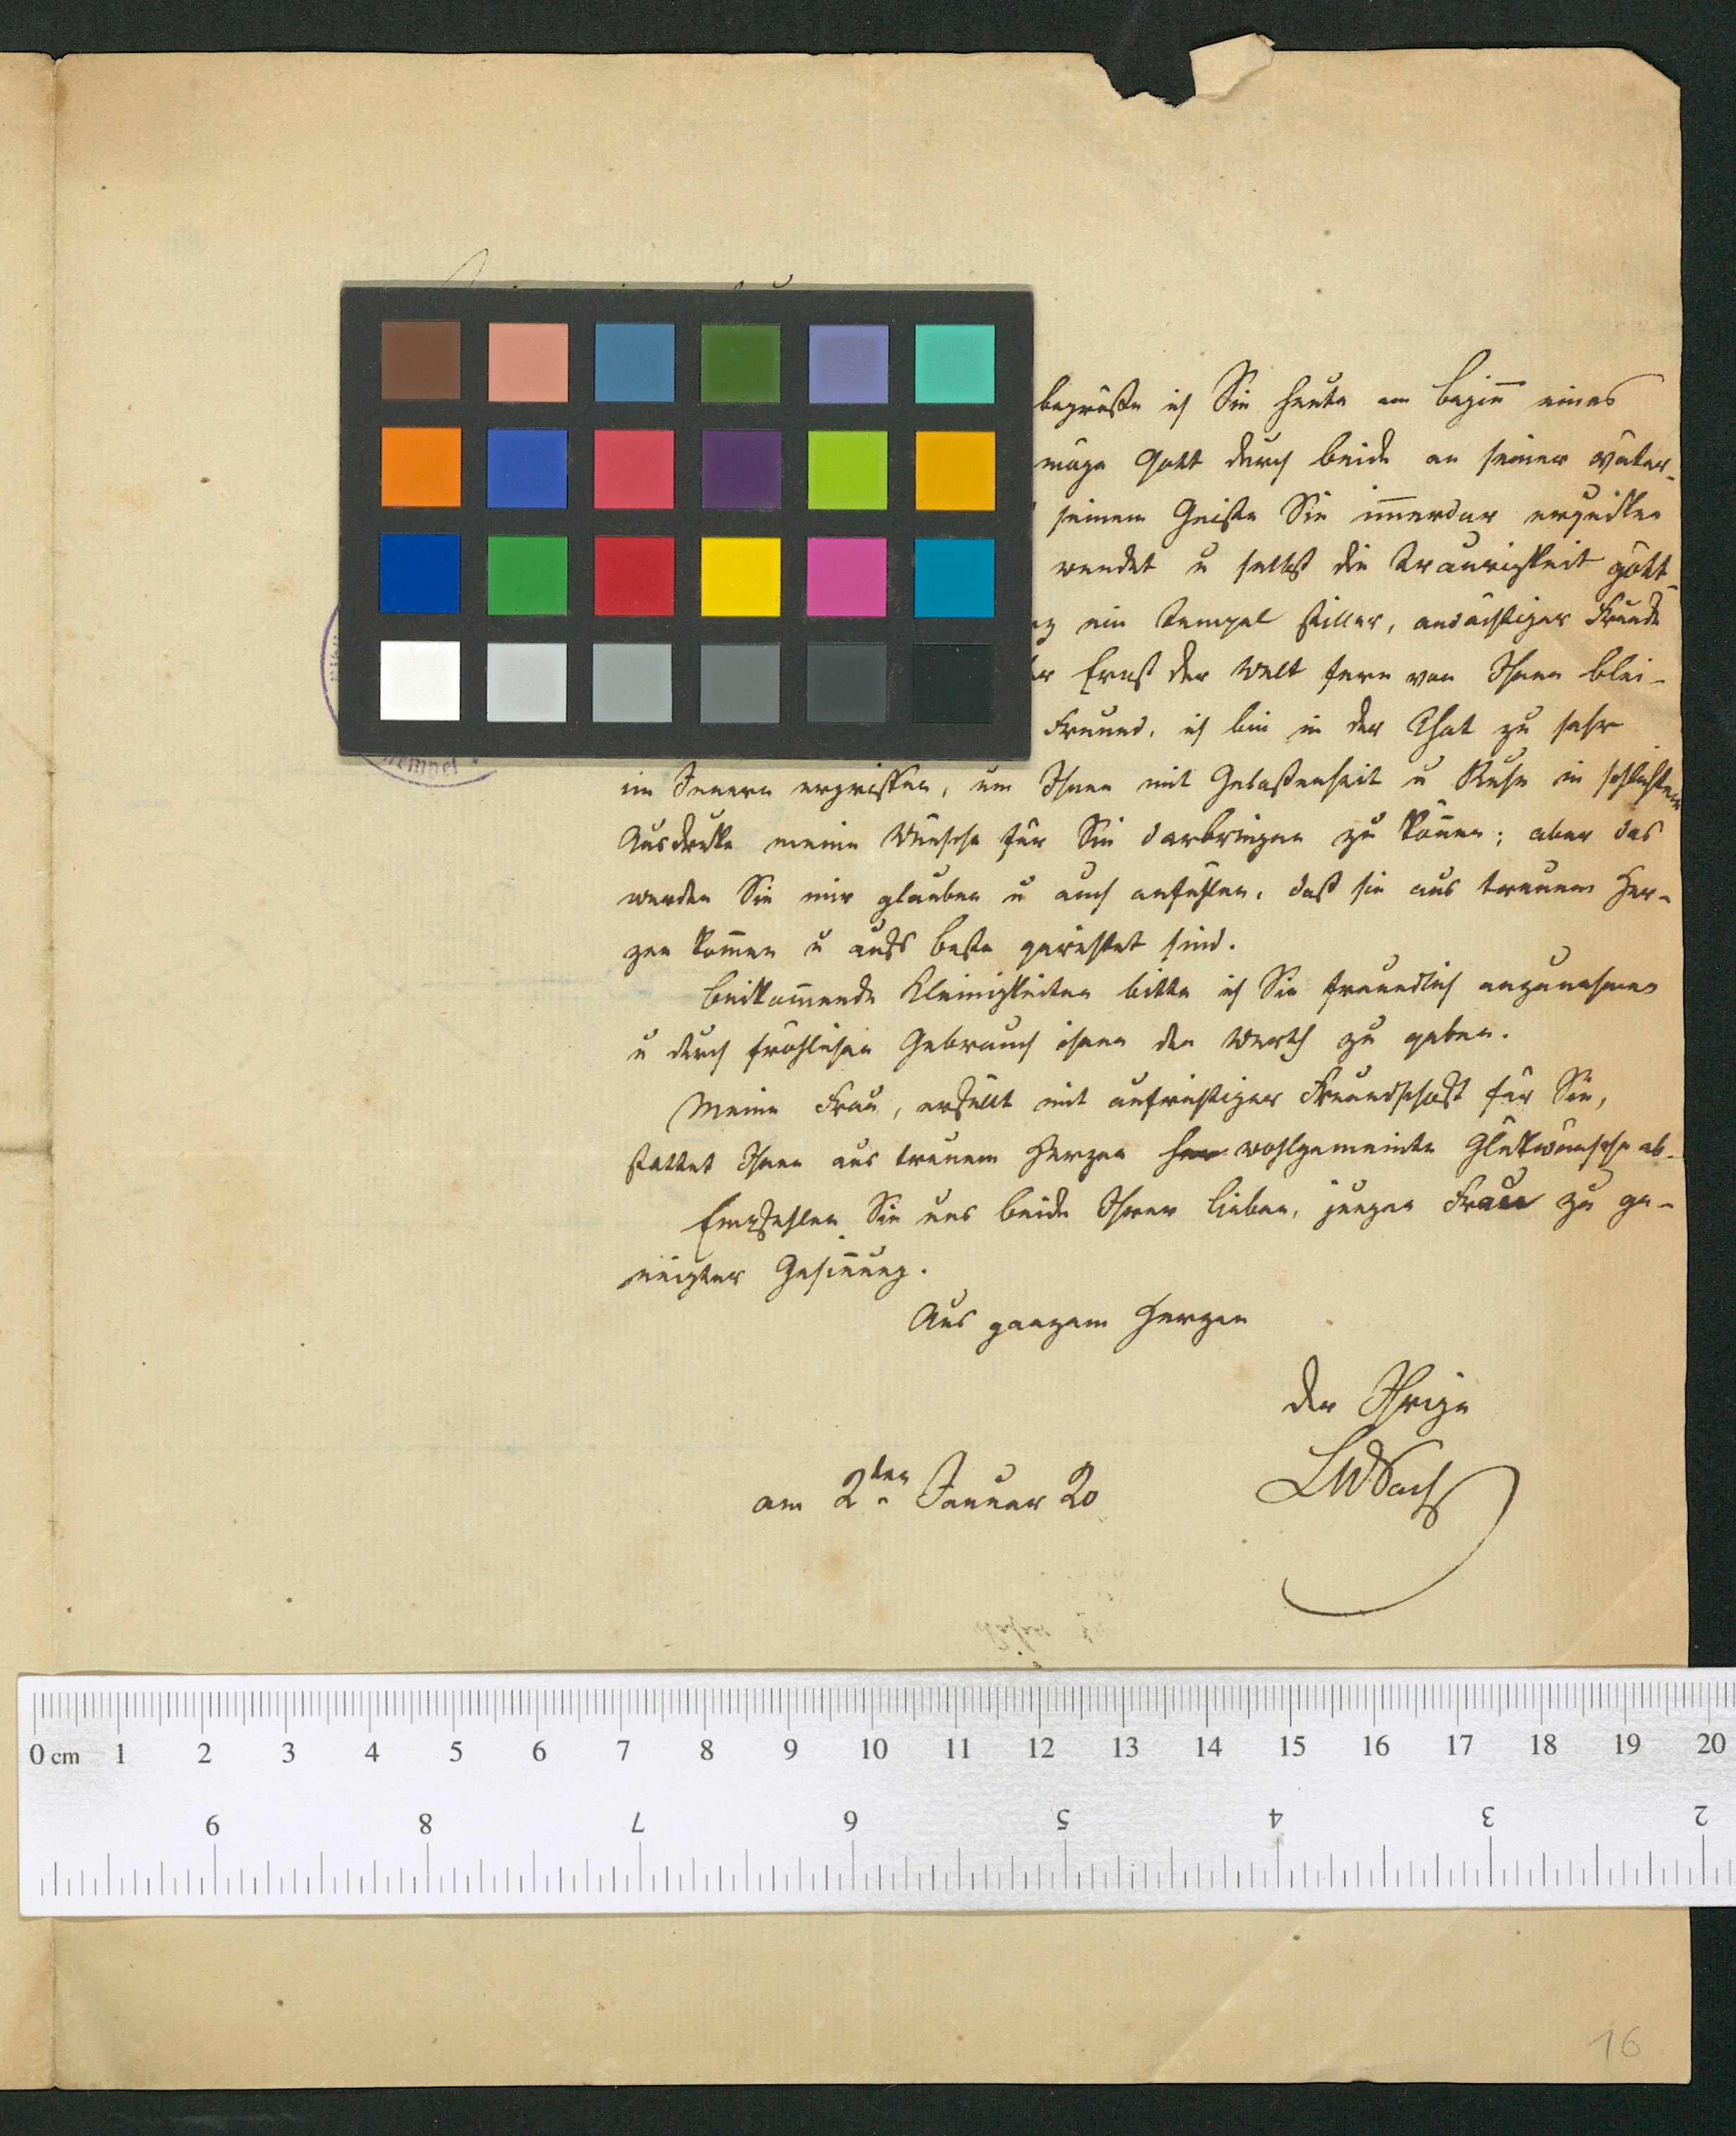 begrüße ich Sie heute am Begiñ eines
möge Gott durch beide an seiner väter-
seinem Geiste Sie im̃erdar erquicken
wendet u selbst die Traurigkeit gött-
ein Tempel stiller, andächtiger Freude
Ernst der Welt fern von Ihnen blei-
Freund, ich bin in der That zu sehr
im Innern ergriffen, um Ihnen mit Gelaßenheit u Ruhe in schlichtem
Ausdrucke meine Wünsche für Sie darbringen zu köñen; aber das
werden Sie mir glauben u auch anfühlen, daß sie aus treuem Her-
zen kom̃en u aufs beste gerichtet sind.
Beikom̃ende Kleinigkeiten bitte ich Sie freundlich anzunehmen
u durch fröhlichen Gebrauch ihnen den Werth zu geben.
Meine Frau, erfüllt mit aufrichtiger Freundschaft für Sie,
stattet Ihnen aus treuem Herzen wohlgemeinte Glükwünsche ab.
Empfehlen Sie uns beide Ihrer lieben, jungen Frau zu ge-
neigter Gesiñung.
Aus ganzem Herzen
der Ihrige
LWSachs
am 2ten Januar 20
0 cm 1 2 3 4 5 6 7 8 9 10 11 12 13 14 15 16 17 18 19 20
9 8 7 6 5 4 3 2
16